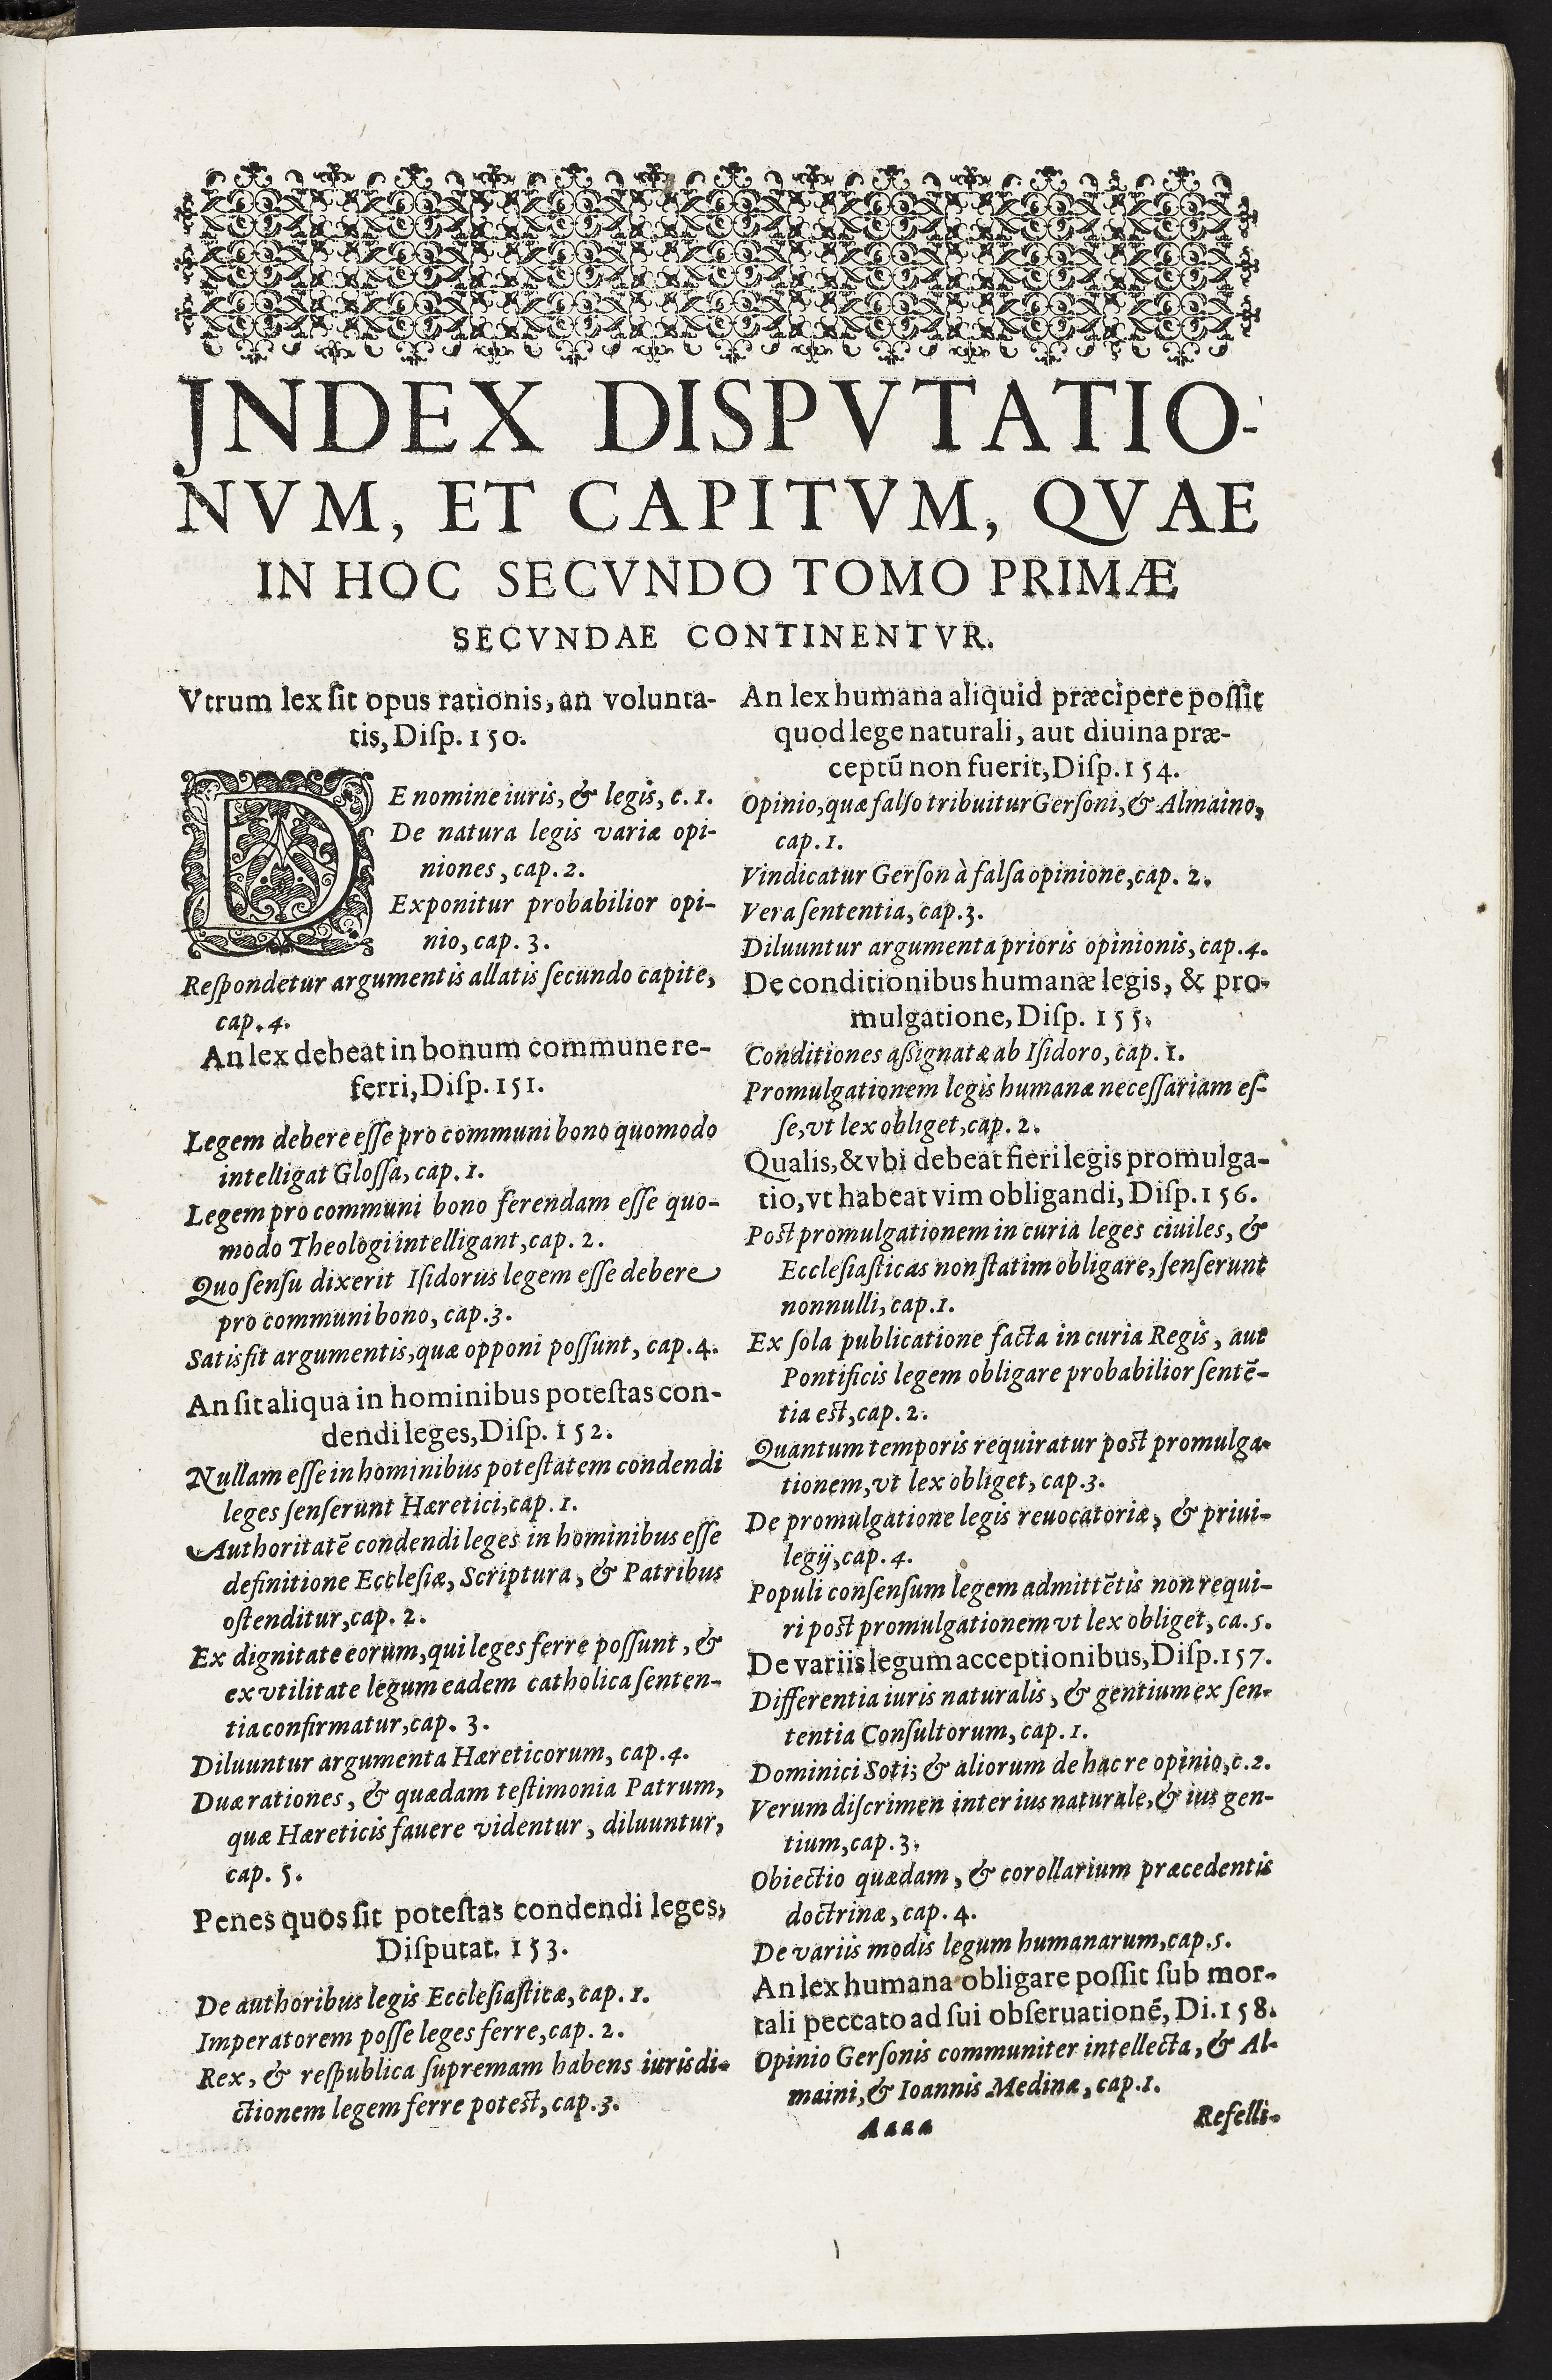 JNDEX DISPVTATIO-
NVM, ET CAPITVM, QVAE
IN HOC SECVNDO TOMO PRIMÆ
SECVNDAE CONTINENTVR.
Vtrum lex ſit opus rationis, an volunta-
tis, Diſp. 150.
DE nomine iuris, & legis, c. 1.
De natura legis variæ opi-
niones, cap. 2.
Exponitur probabilior opi-
nio, cap. 3.
Reſpondetur argumentis allatis ſecundo capite,
cap. 4.
An lex debeat in bonum commune re-
ferri, Diſp. 151.
Legem debere eſſe pro communi bono quomodo
intelligat Gloſſa, cap. 1.
Legem pro communi bono ferendam eſſe quo-
modo Theologi intelligant, cap. 2.
Quo ſenſu dixerit Iſidorus legem eſſe debere
pro communi bono, cap. 3.
Satisfit argumentis, quæ opponi poſſunt, cap. 4.
An ſit aliqua in hominibus poteſtas con-
dendi leges, Diſp. 152.
Nullam eſſe in hominibus poteſtatem condendi
leges ſenſerunt Hæretici, cap. 1.
Authoritatē condendi leges in hominibus eſſe
definitione Eccleſiæ, Scriptura, & Patribus
oſtenditur, cap. 2.
Ex dignitate eorum, qui leges ferre poſſunt, &
ex vtilitate legum eadem catholica ſenten-
tia confirmatur, cap. 3.
Diluuntur argumenta Hæreticorum, cap. 4.
Duæ rationes, & quædam teſtimonia Patrum,
quæ Hæreticis fauere videntur, diluuntur,
cap. 5.
Penes quos ſit poteſtas condendi leges,
Diſputat. 153.
De authoribus legis Eccleſiaſticæ, cap. 1.
Imperatorem poſſe leges ferre, cap. 2.
Rex, & reſpublica ſupremam habens iurisdi-
ctionem legem ferre poteſt, cap. 3.
An lex humana aliquid præcipere poſſit
quod lege naturali, aut diuina præ-
ceptū non fuerit, Diſp. 154.
Opinio, quæ falſo tribuitur Gerſoni, & Almaino,
cap. 1.
Vindicatur Gerſon à falſa opinione, cap. 2.
Vera ſententia, cap. 3.
Diluuntur argumenta prioris opinionis, cap. 4.
De conditionibus humanæ legis, & pro-
mulgatione, Diſp. 155.
Conditiones aſſignatæ ab Iſidoro, cap. 1.
Promulgationem legis humanæ neceſſariam eſ-
ſe, vt lex obliget, cap. 2.
Qualis, & vbi debeat fieri legis promulga-
tio, vt habeat vim obligandi, Diſp. 156.
Poſt promulgationem in curia leges ciuiles, &
Eccleſiaſticas non ſtatim obligare, ſenſerunt
nonnulli, cap. 1.
Ex ſola publicatione facta in curia Regis, aut
Pontificis legem obligare probabilior ſentē-
tia eſt, cap. 2.
Quantum temporis requiratur poſt promulga-
tionem, vt lex obliget, cap. 3.
De promulgatione legis reuocatoriæ, & priui-
legij, cap. 4.
Populi conſenſum legem admittētis non requi-
ri poſt promulgationem vt lex obliget, ca. 5.
De variis legum acceptionibus, Diſp. 157.
Differentia iuris naturalis, & gentium ex ſen-
tentia Conſultorum, cap. 1.
Dominici Soti; & aliorum de hac re opinio, c. 2.
Verum diſcrimen inter ius naturale, & ius gen-
tium, cap. 3.
Obiectio quædam, & corollarium præcedentis
doctrinæ, cap. 4.
De variis modis legum humanarum, cap. 5.
An lex humana obligare poſſit ſub mor-
tali peccato ad ſui obſeruationē, Di. 158.
Opinio Gerſonis communiter intellecta, & Al-
maini, & Ioannis Medinæ, cap. 1.
Aaaa Refelli-